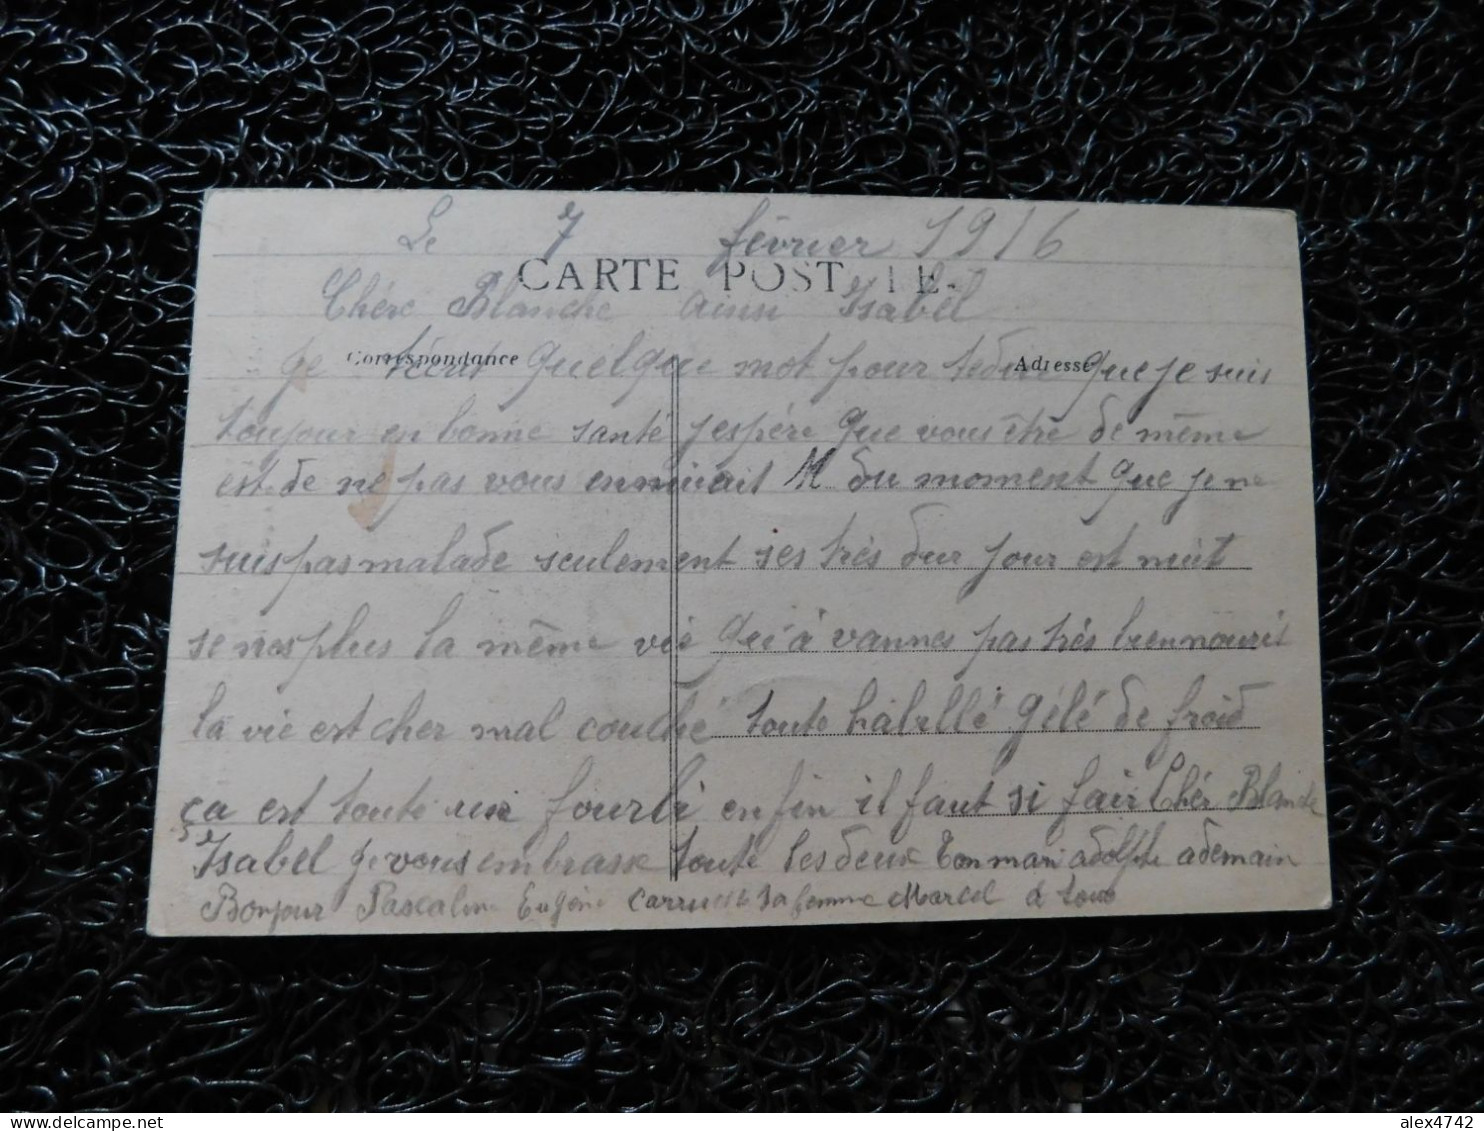 Le 7 février 1916
CARTE POSTALE
Chére Blanche ainsi Isabel
Correspondance
Adresse
je técrit quelque mot pour tedire que je suis
toujour en bonne santé jespére que vous être de même
est de ne pas vous ennuiait du moment que je ne
suis pas malade seulement ses très dur jour est nuit
se nes plus la même vie qui à vannes pas très bien nourit
la vie est cher mal couché toute habillé gélé de froid
ça est toute une fourbi enfin il faut si fair Chér Blanche
Isabel je vous embrasse toute les deux ton mari adolphe ademain
Bonjour Pascaline Eugéne sa femme Marcel à tous
alex4742